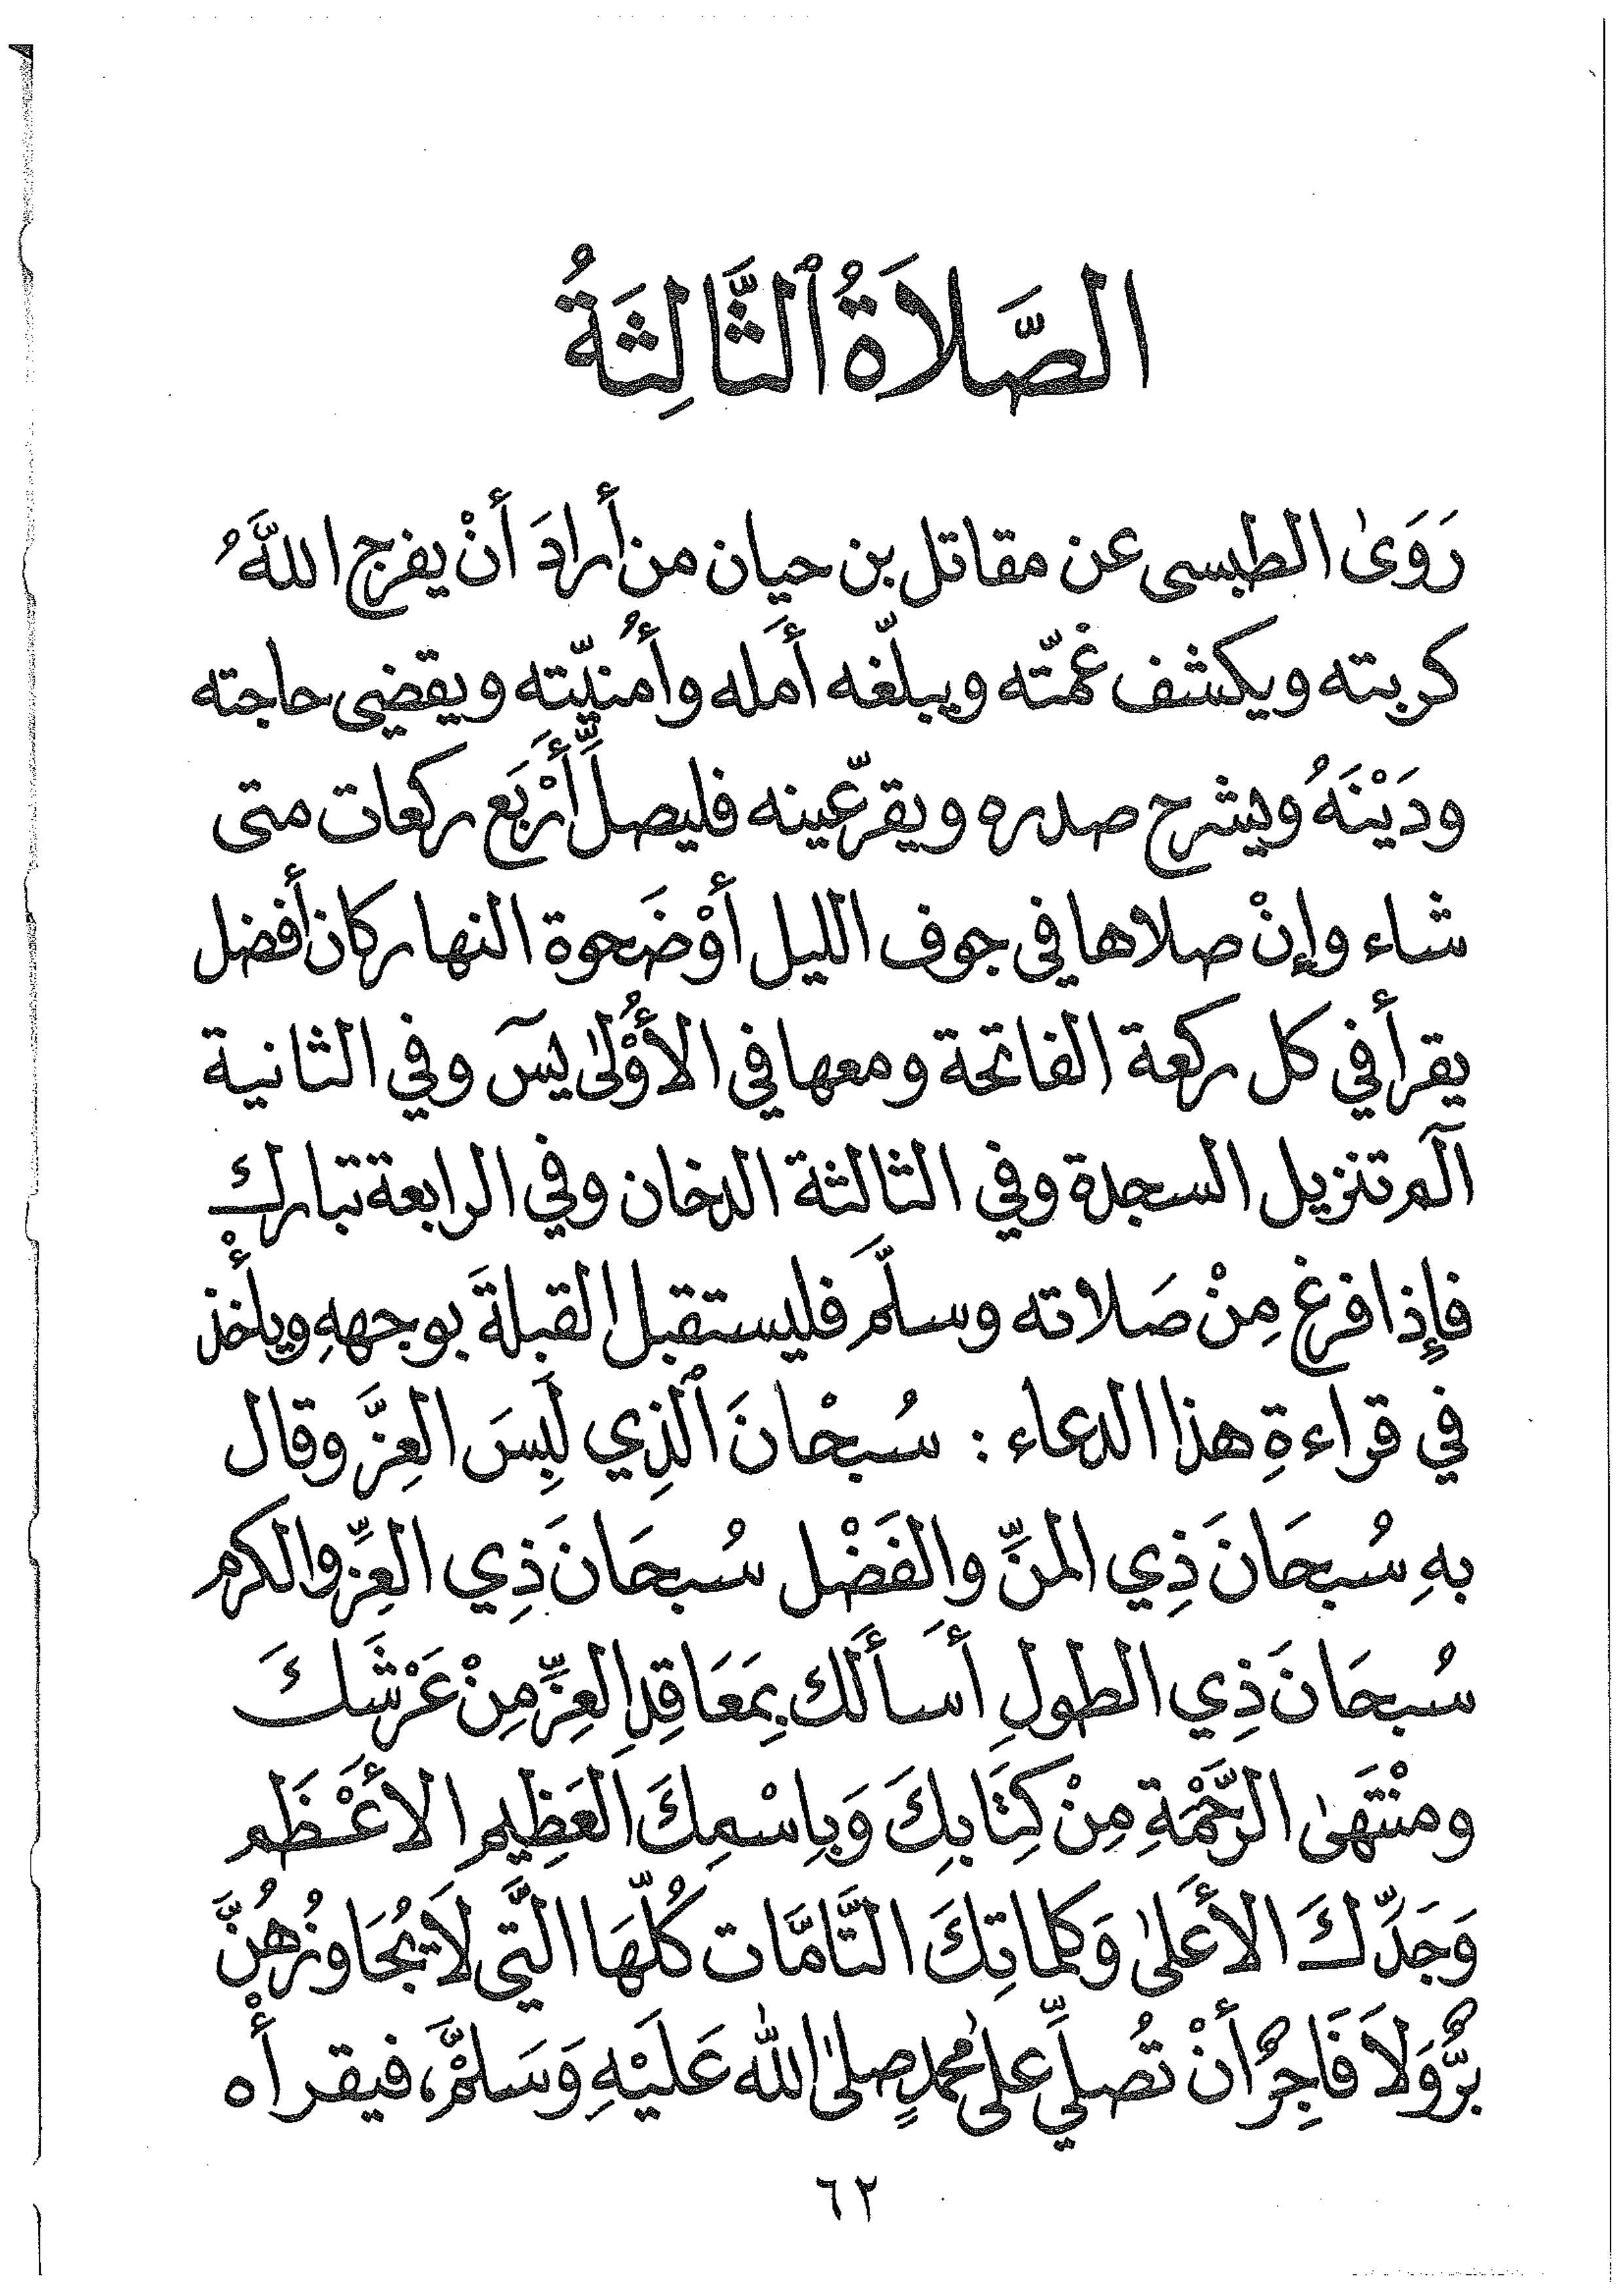 الصَّلاَةُ ٱلثَّالِثَةُ
رَوَىٰ الطبسى عن مقاتل بن حيان من أرادَ أنْ يفرج اللَّهُ
كربته ويكشف غمّته ويبلّغه أَمله وأُمنيّته ويقضى حاجته
ودَيْنَهُ ويشرح صدره ويقرّعينه فليصلِّ أَرْبَع ركعات متى
شاء وإنْ صلاها فى جوف الليل أوْ ضَحوة النهار كان أفضل
يقرأ في كل ركعة الفاتحة ومعها في الأُوْلىٰ يسَ وفي الثانية
آلم تنزيل السجدة وفي الثالثة الدخان وفي الرابعة تبارك
فإذا فرغ مِنْ صَلاته وسلَّمَ فليستقبل القبلةَ بوجههِ ويأْخذ
في قراءةِ هذا الدعاء : سُبْحْانَ ٱلَّذِي لَبِسَ العِزَّ وقال
بهِ سُبحَانَ ذِي المنِّ والفَضْل سُبحَانَ ذِي العِزِّ والكرم
سُبحَانَ ذِي الطولِ أَسأَلك بِمَعَاقِدِ العِزِّ مِنْ عَرْشَكَ
ومنْتَهىٰ الرَّحْمَةِ مِنْ كِتَابِكَ وَبِاسْمِكَ العَظِيمِ الأَعْظَم
وَجَدِّكَ الأَعَلىٰ وَكلماتِكَ التَّامَّات كُلّهَا الَّتِي لاَ يُجَاوزُهُنَّ
بَرٌّ وَلاَ فَاجِرٌ أنْ تُصلِّي على محمدٍ صلىٰ الله عَلَيْهِ وَسَلَّمْ، فيقرأْه
٦٢